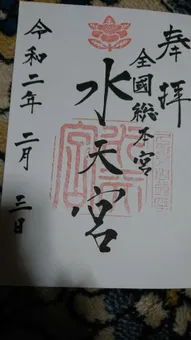 奉拝
全國総本宮
水天宮
令和二年二月三日